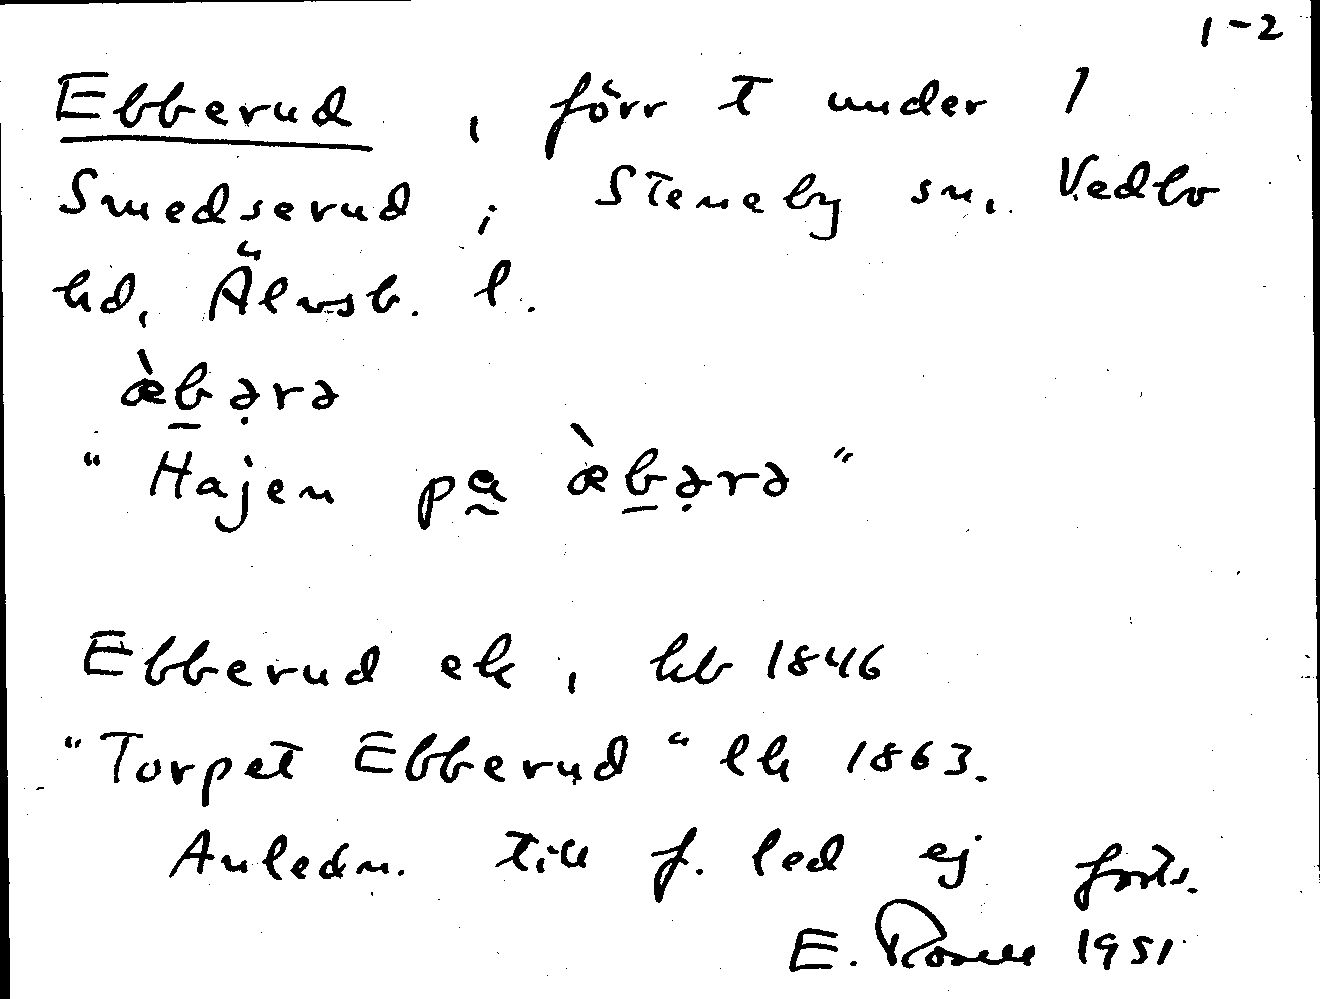 1-2
Ebberud, förr t under 1
Smedserud; Steneby sn, Vedbo
hd, Älvsb. l.
æ̀b̲ə̣rə
"Hajen pa̰ æ̀b̲ə̣rə"
Ebberud ek, hb 1846
"Torpet Ebberud" lh 1863.
Anledn. till f. led ej forts.
E. Rosell 1951